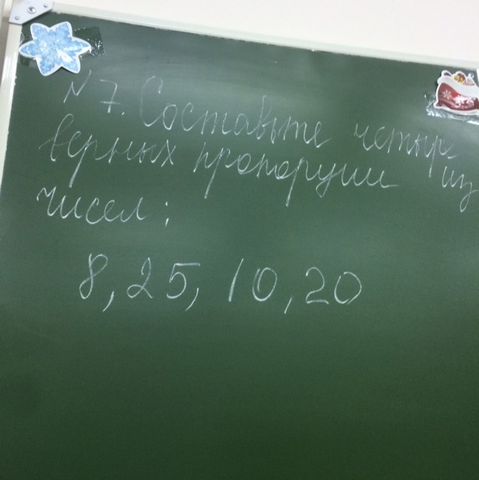 N 7. Составьте четыре
верных пропорции из
чисел:
8, 25, 10, 20